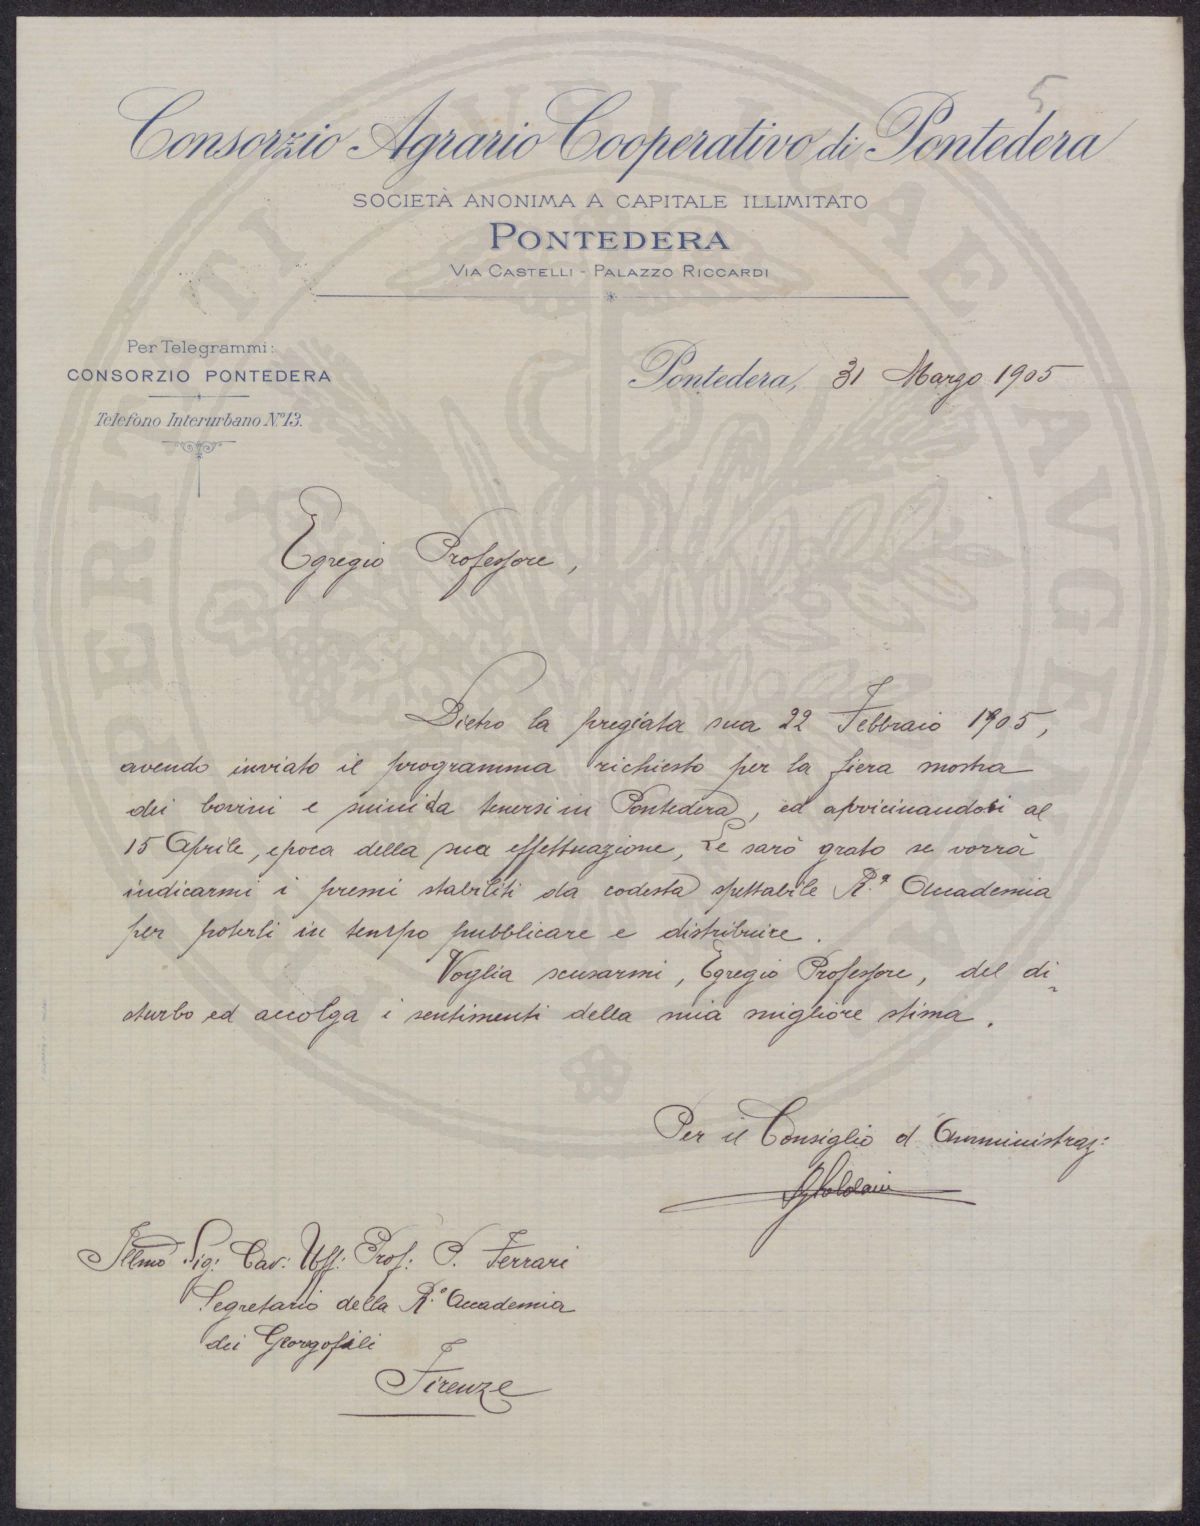 5
Consorzio Agrario Cooperativo di Pontedera
SOCIETÀ ANONIMA A CAPITALE ILLIMITATO
PONTEDERA
VIA CASTELLI - PALAZZO RICCARDI
Per Telegrammi:
CONSORZIO PONTEDERA
Telefono Interurbano N.º 13.
Pontedera, 31 Marzo 1905
Egregio Professore,
Dietro la pregiata sua 22 Febbraio 1905,
avendo inviato il programma richiesto per la fiera mostra
dei bovini e suini da tenersi in Pontedera, ed avvicinandosi al
15 Aprile, epoca della sua effettuazione, Le sarò grato se vorrà
indicarmi i premi stabiliti da codesta spettabile R.ª Accademia
per poterli in tempo pubblicare e distribuire.
Voglia scusarmi, Egregio Professore, del di-
sturbo ed accolga i sentimenti della mia migliore stima.
Per il Consiglio d'Amministraz:
Illmo Sig: Cav: Uff: Prof: P. Ferrari
Segretario della R.ª Accademia
dei Georgofili
Firenze